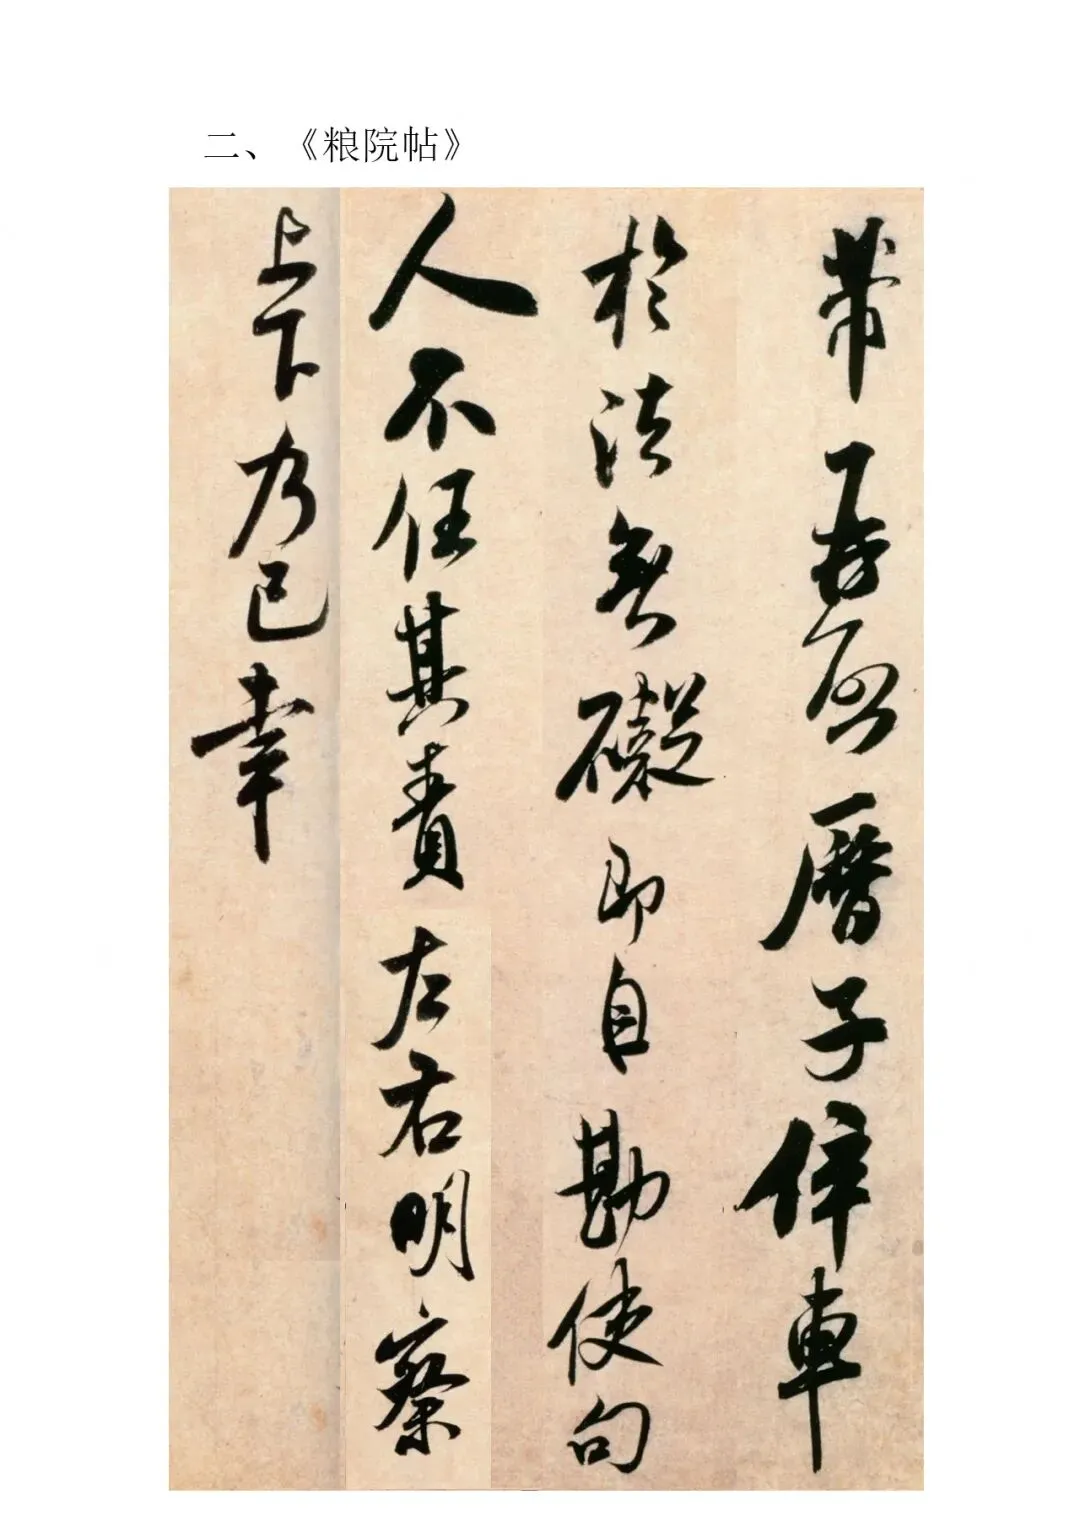 二、《粮院帖》
芾再啓曆子倅車
於法無礙即自勘使句
人不任其責左右明察
上下乃已幸